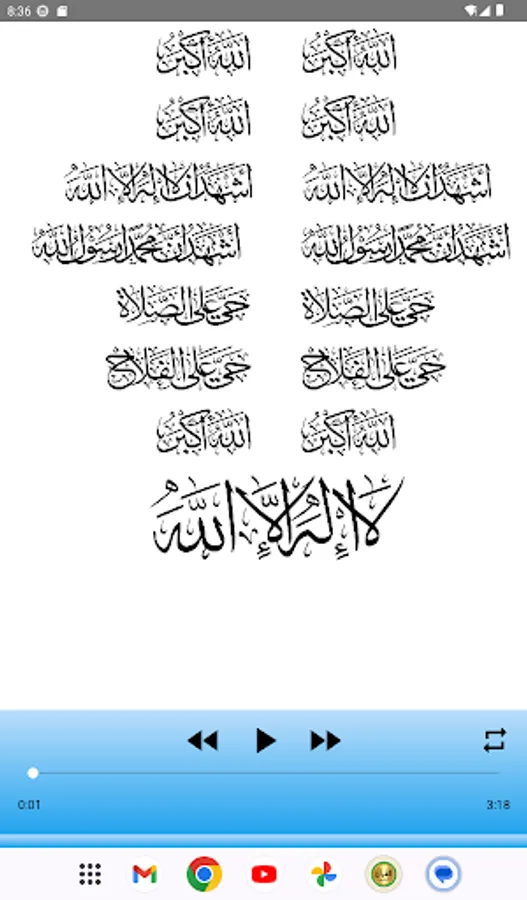 8:36
الله أكبر الله أكبر
الله أكبر الله أكبر
أشهد أن لا إله إلا الله أشهد أن لا إله إلا الله
أشهد أن محمدا رسول الله أشهد أن محمدا رسول الله
حي على الصلاة حي على الصلاة
حي على الفلاح حي على الفلاح
الله أكبر الله أكبر
لا إله إلا الله
0:01 3:18